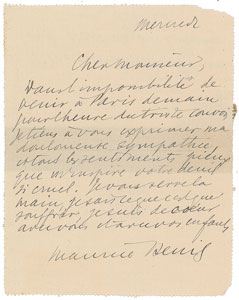 Mercredi
Cher Monsieur,
Dans l'impossibilité de
venir à Paris demain
pour l'heure du triste convoi
je tiens à vous exprimer ma
douloureuse sympathie
et tous les sentiments pieux
que m'inspire votre deuil
si cruel. Je vous serre la
main, je sais ce que c'est que
souffrir, je suis de cœur
avec vous et avec vos enfants
Maurice Denis